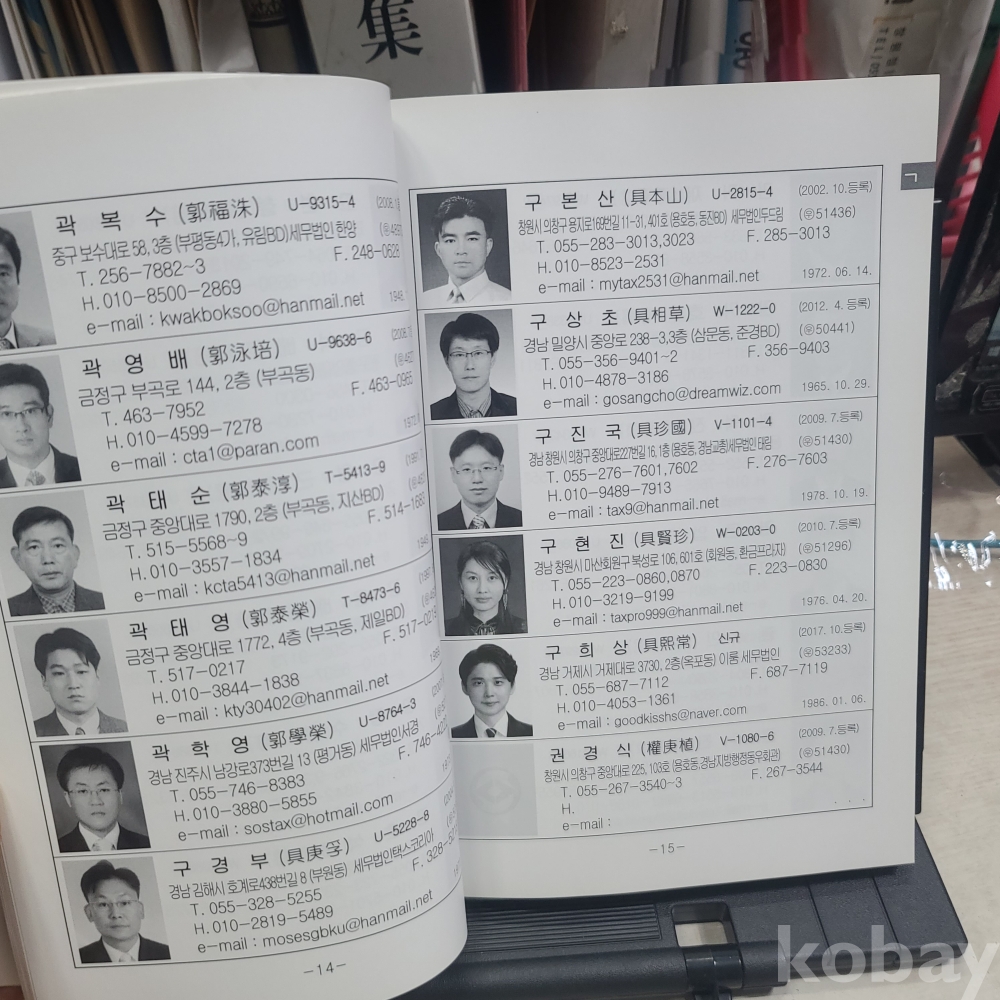 集
곽 복 수 (郭福洙) U-9315-4
중구 보수대로 58, 3층 (부평동4가, 유림BD)세무법인 한양
T. 256-7882~3 F. 248-0628
H. 010-8500-2869
e-mail : kwakboksoo@hanmail.net
곽 영 배 (郭泳培) U-9638-6
금정구 부곡로 144, 2층 (부곡동)
T. 463-7952 F. 463-0965
H. 010-4599-7278
e-mail : cta1@paran.com
곽 태 순 (郭泰淳) T-5413-9
금정구 중앙대로 1790, 2층 (부곡동, 지산BD)
T. 515-5568~9
H. 010-3557-1834
e-mail : kcta5413@hanmail.net
곽 태 영 (郭泰榮) T-8473-6
금정구 중앙대로 1772, 4층 (부곡동, 제일BD)
T. 517-0217
H. 010-3844-1838
e-mail : kty30402@hanmail.net
곽 학 영 (郭學榮) U-8764-3
경남 진주시 남강로373번길 13 (평거동) 세무법인서경
T. 055-746-8383
H. 010-3880-5855
e-mail : sostax@hotmail.com
구 경 부 (具庚孚) U-5228-8
경남 김해시 호계로438번길 8 (부원동) 세무법인택스코리아
T. 055-328-5255
H. 010-2819-5489
e-mail : mosesgbku@hanmail.net
-14-
ㄱ
구 본 산 (具本山) U-2815-4 (2002. 10.등록)
창원시 의창구 용지로169번길 11-31, 401호 (용호동, 동진BD) 세무법인두드림 (㉾51436)
T. 055-283-3013,3023 F. 285-3013
H. 010-8523-2531
e-mail : mytax2531@hanmail.net 1972. 06. 14.
구 상 초 (具相草) W-1222-0 (2012. 4. 등록)
경남 밀양시 중앙로 238-3,3층 (삼문동, 준경BD) (㉾50441)
T. 055-356-9401~2 F. 356-9403
H. 010-4878-3186
e-mail : gosangcho@dreamwiz.com 1965. 10. 29.
구 진 국 (具珍國) V-1101-4 (2009. 7.등록)
경남 창원시 의창구 중앙대로227번길 16, 1층 (용호동, 경남교총)세무법인 태림 (㉾51430)
T. 055-276-7601,7602 F. 276-7603
H. 010-9489-7913
e-mail : tax9@hanmail.net 1978. 10. 19.
구 현 진 (具賢珍) W-0203-0 (2010. 7.등록)
경남 창원시 마산회원구 북성로 106, 601호 (회원동, 황금프라자) (㉾51296)
T. 055-223-0860,0870 F. 223-0830
H. 010-3219-9199
e-mail : taxpro999@hanmail.net 1976. 04. 20.
구 희 상 (具熙常) 신규 (2017. 10.등록)
경남 거제시 거제대로 3730, 2층(옥포동) 이룸 세무법인 (㉾53233)
T. 055-687-7112 F. 687-7119
H. 010-4053-1361
e-mail : goodkisshs@naver.com 1986. 01. 06.
권 경 식 (權庚植) V-1080-6 (2009. 7.등록)
창원시 의창구 중앙대로 225, 103호 (용호동,경남지방행정동우회관) (㉾51430)
T. 055-267-3540~3 F. 267-3544
H.
e-mail : . . .
-15-
kobay